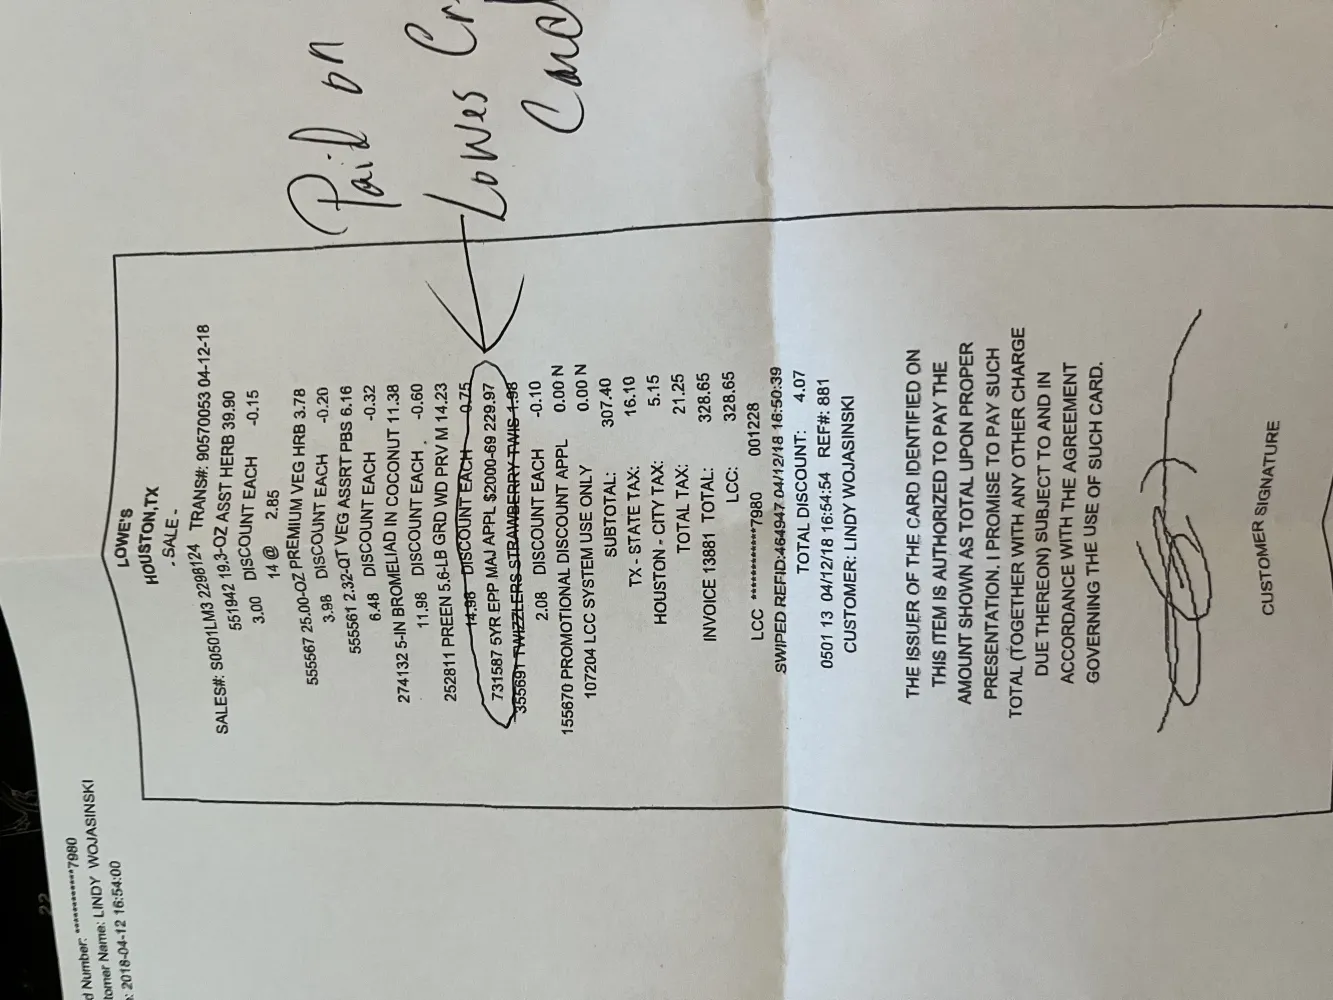 Paid on
Lowes
Card
LOWE'S
HOUSTON,TX
- SALE -
SALES#: S0501LM3 2298124 TRANS#: 90570053 04-12-18
551942 19.3-OZ ASST HERB 39.90
3.00 DISCOUNT EACH -0.15
14 @ 2.85
555567 25.00-OZ PREMIUM VEG HRB 3.78
3.98 DISCOUNT EACH -0.20
555561 2.32-QT VEG ASSRT PBS 6.16
6.48 DISCOUNT EACH -0.32
274132 5-IN BROMELIAD IN COCONUT 11.38
11.98 DISCOUNT EACH -0.60
252811 PREEN 5.6-LB GRD WD PRV M 14.23
14.98 DISCOUNT EACH -0.75
731587 5YR EPP MAJ APPL $2000-69 229.97
355691 TWIZZLERS STRAWBERRY TWIS 1.98
2.08 DISCOUNT EACH -0.10
155670 PROMOTIONAL DISCOUNT APPL 0.00 N
107204 LCC SYSTEM USE ONLY 0.00 N
SUBTOTAL: 307.40
TX - STATE TAX: 16.10
HOUSTON - CITY TAX: 5.15
TOTAL TAX: 21.25
INVOICE 13881 TOTAL: 328.65
LCC: 328.65
LCC ************7980 001228
SWIPED REFID:464947 04/12/18 16:50:39
TOTAL DISCOUNT: 4.07
0501 13 04/12/18 16:54:54 REF#: 881
CUSTOMER: LINDY WOJASINSKI
THE ISSUER OF THE CARD IDENTIFIED ON
THIS ITEM IS AUTHORIZED TO PAY THE
AMOUNT SHOWN AS TOTAL UPON PROPER
PRESENTATION. I PROMISE TO PAY SUCH
TOTAL (TOGETHER WITH ANY OTHER CHARGE
DUE THEREON) SUBJECT TO AND IN
ACCORDANCE WITH THE AGREEMENT
GOVERNING THE USE OF SUCH CARD.
CUSTOMER SIGNATURE
d Number: ************7980
tomer Name: LINDY WOJASINSKI
: 2018-04-12 16:54:00
22